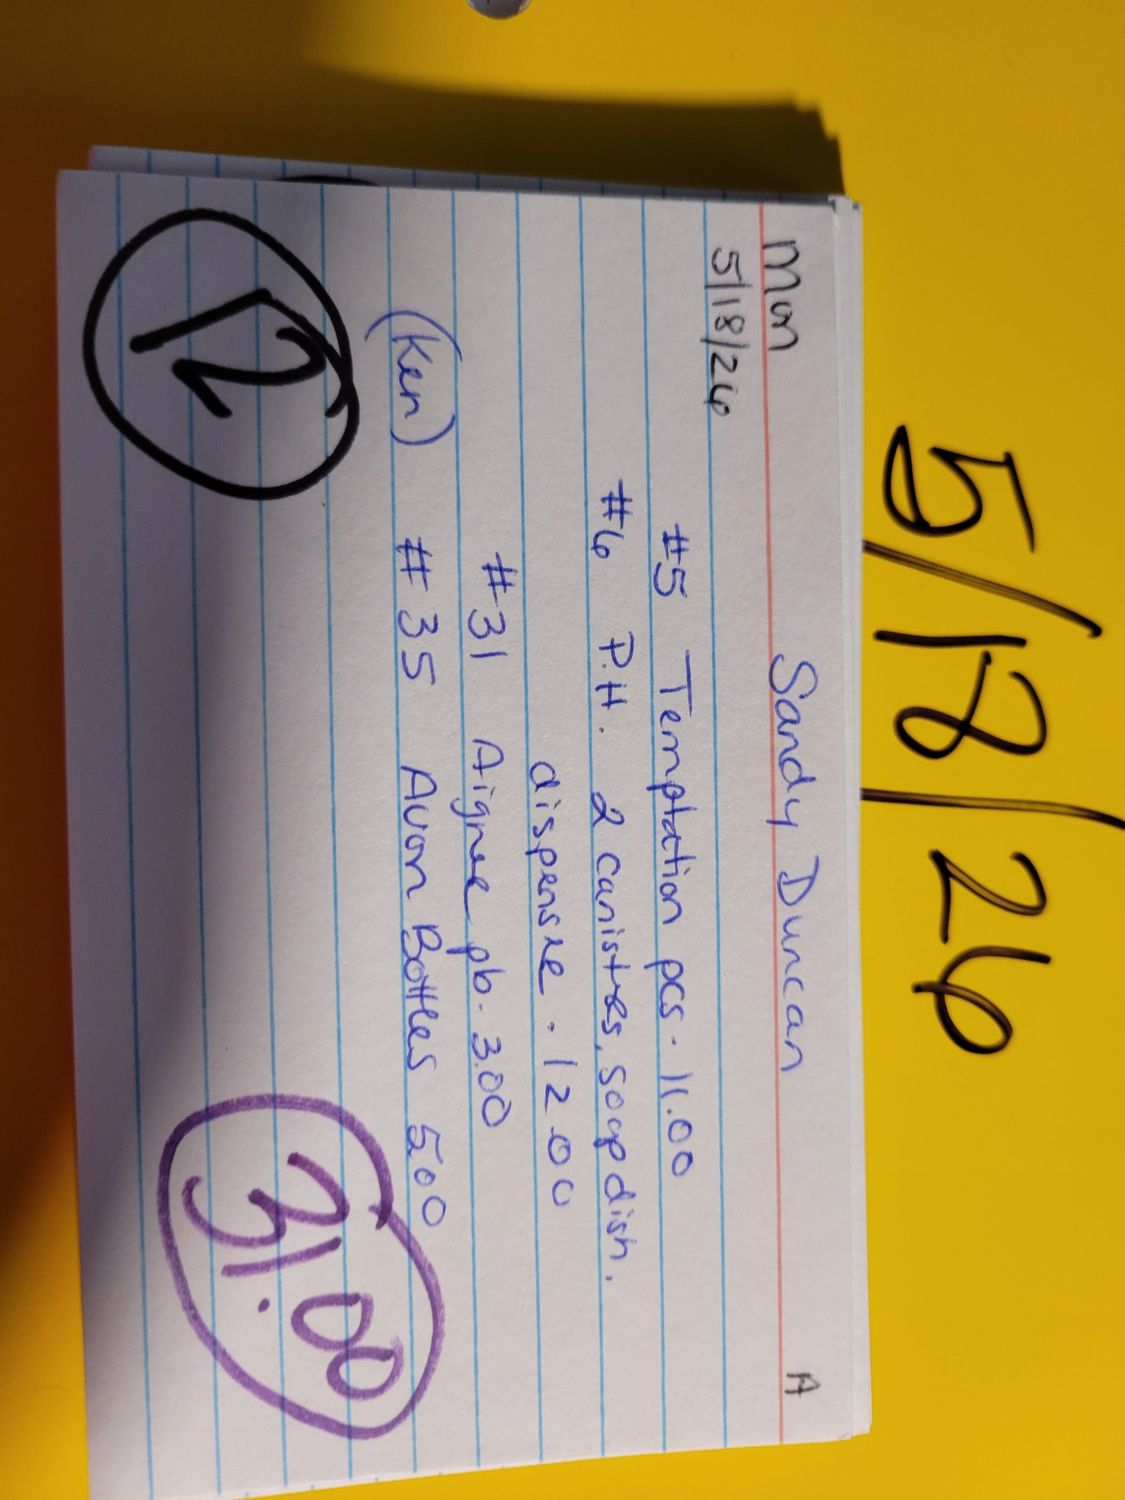 5/18/26
Mon Sandy Duncan A
5/18/26
#5 Temptation pcs - 11.00
#6 P.H. 2 canistres, soap dish,
dispensre - 12.00
#31 Aigner pb. 3.00
(Ken) #35 Avon Bottles 5.00
12
31.00